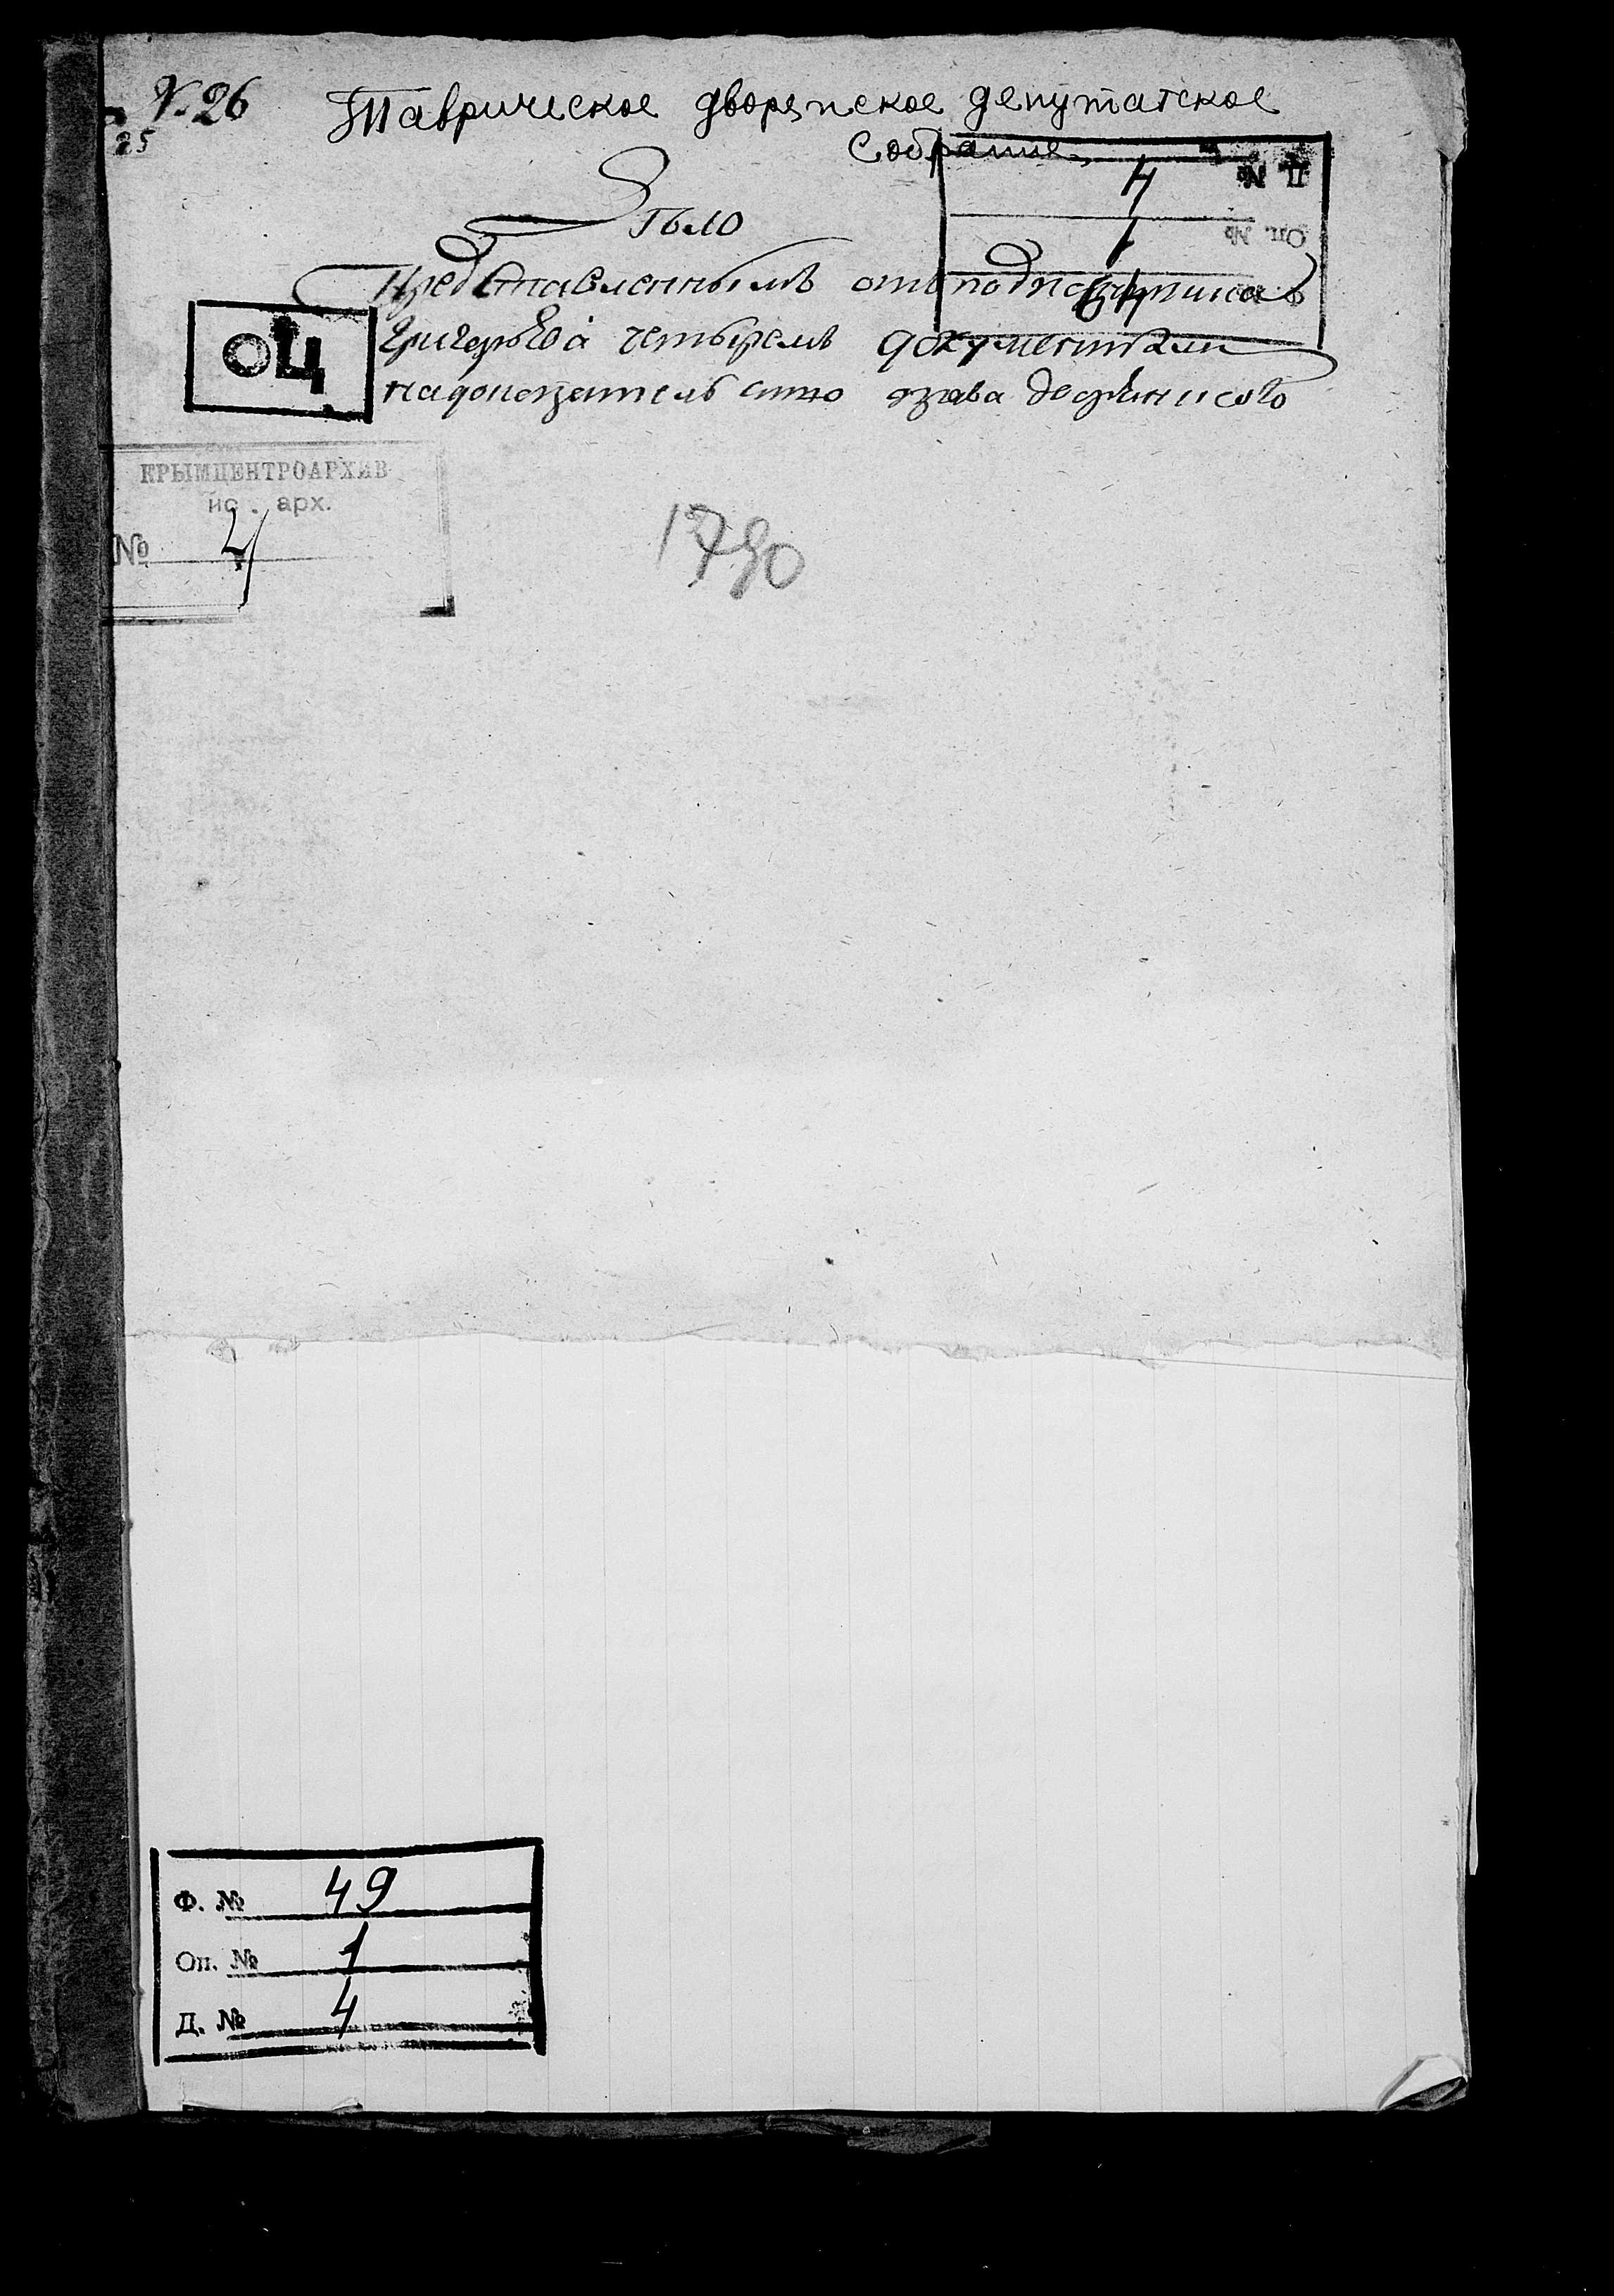 № 26
25
Таврическое дворянское депутатское
Собрание
Дѣло
Представленнымъ отъ подпоручика
Григорьева четыремъ документами
на доказательство права дворянского
П. №
4
Оп. №
1
ОЦ
КРЫМЦЕНТРОАРХИВ
арх.
№ 4
1790
Ф. № 49
Оп. № 1
Д. № 4